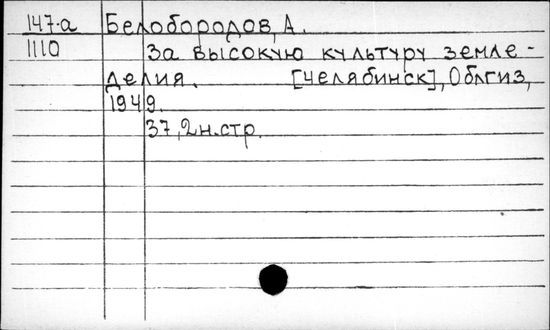 147-а Белобородов, А.
1110 За высокую культуру земле-
делия. [Челябинск], Облгиз,
1949.
37, 2 н. стр.